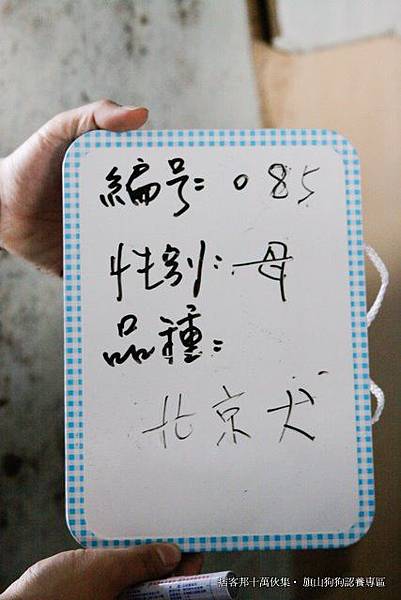 編号: 085
性別: 母
品種:
北京犬
痞客邦十萬伙集・旗山狗狗認養專區